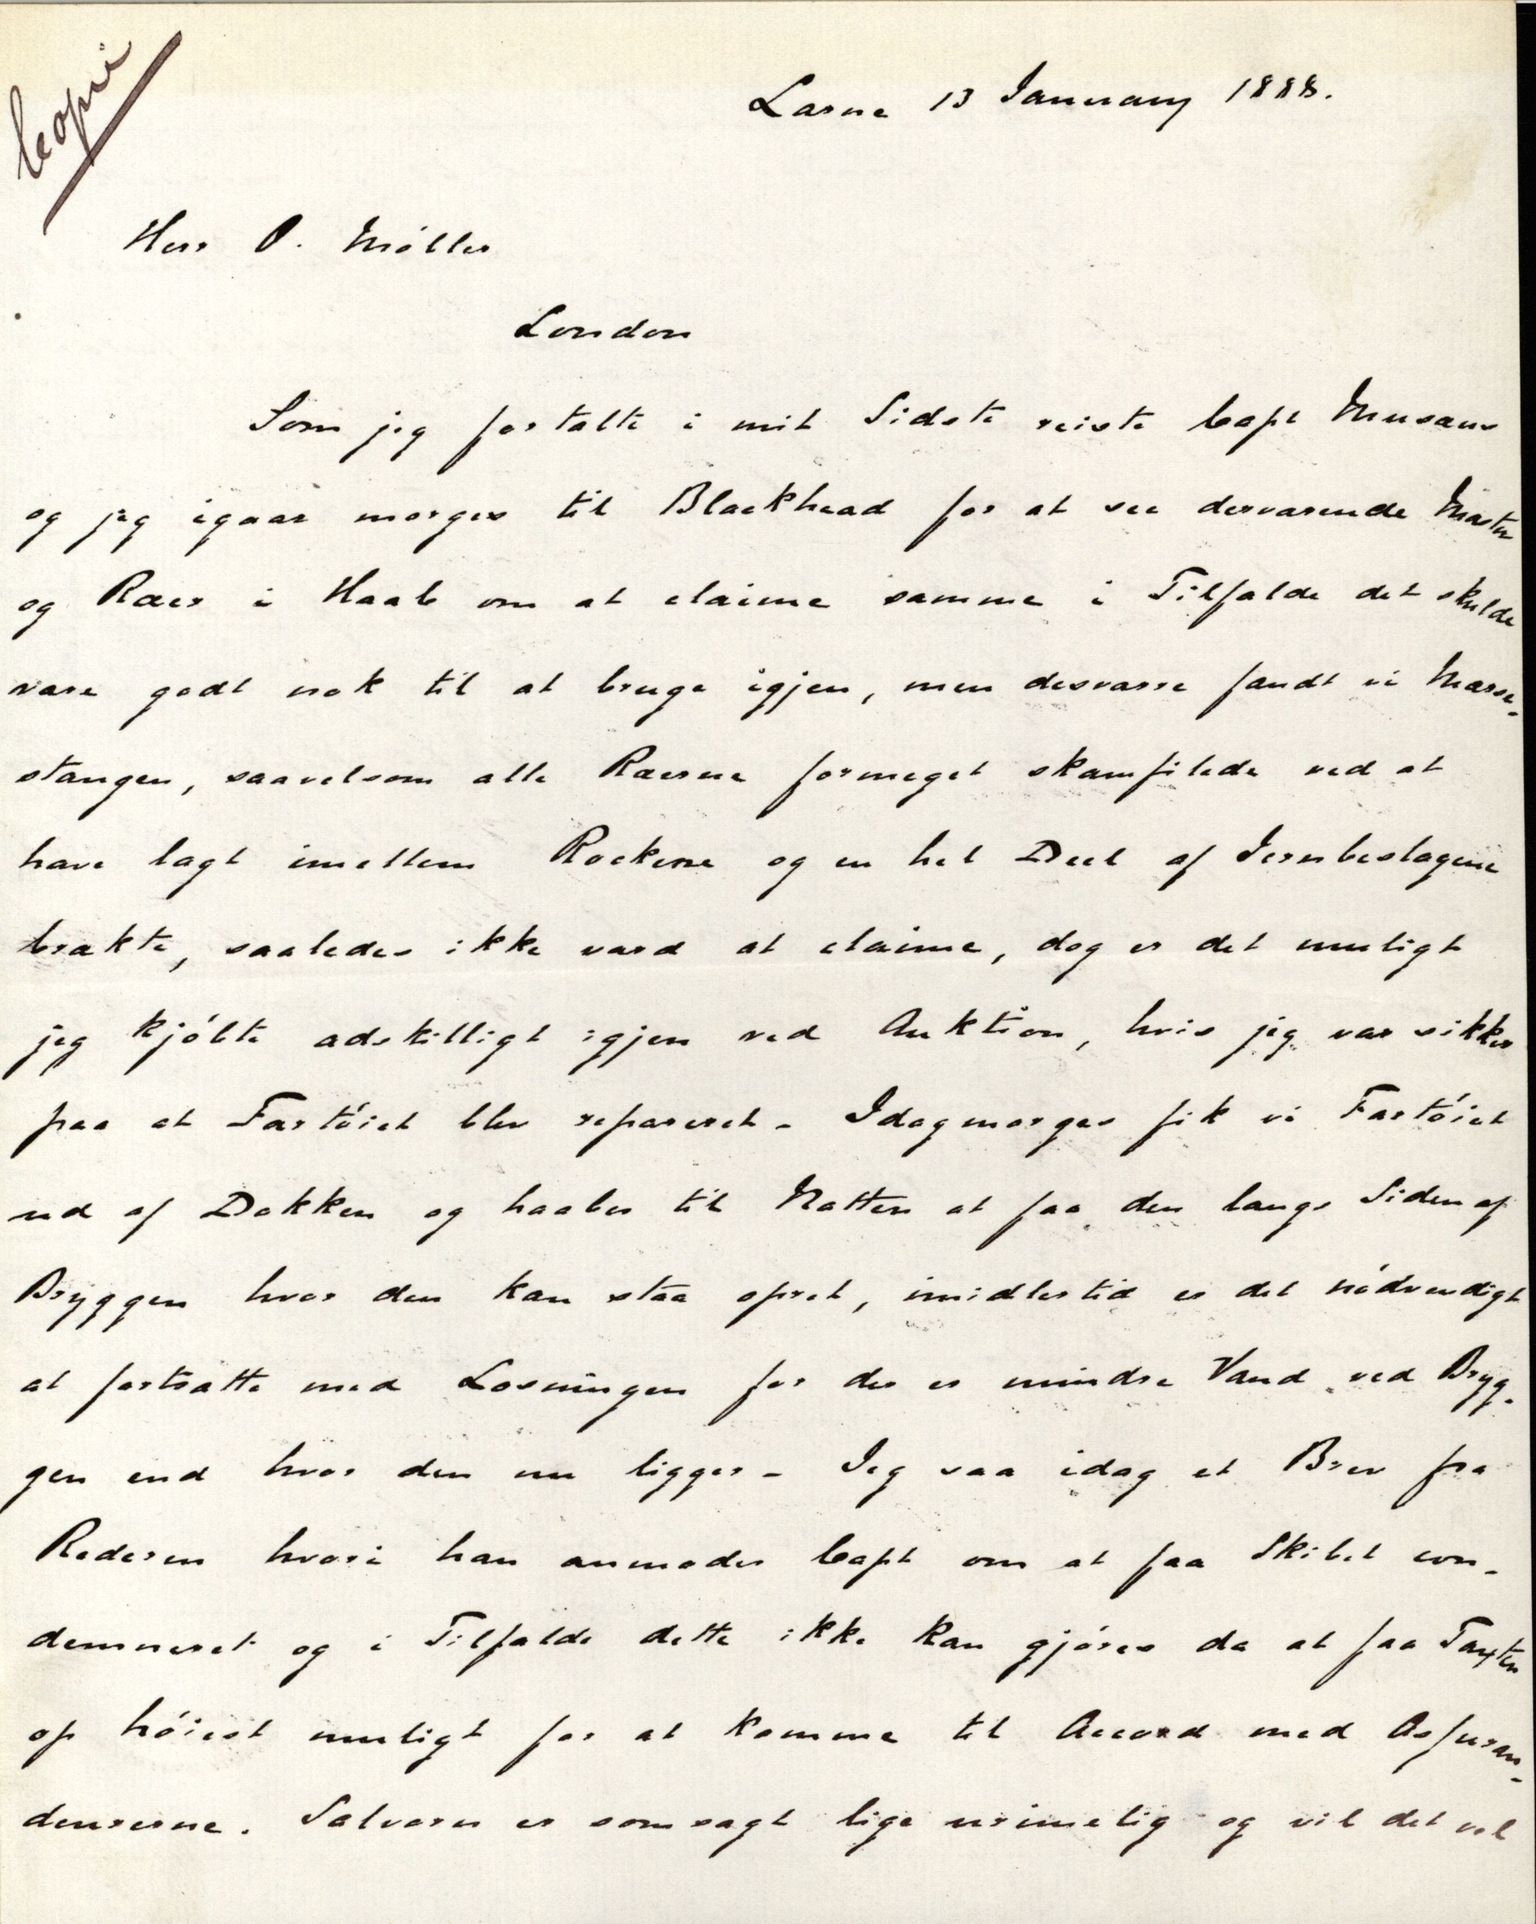 Copi
Larne 13 January 1888.
Herr O. Møller
London
Som jeg fortalte i mit Sidste reiste Capt Musæus
og jeg igaar morges til Blackhead for at see derværende Master
og Ræer i Haab om at claime samme i Tilfælde det skulde
være godt nok til at bruge igjen, men desværre fandt vi Mærse-
stangen, saavelsom alle Ræerne formeget skamfilede ved at
have lagt imellem Rockerne og en hel Deel af Jernbeslagene
brækte, saaledes ikke værd at claime, dog er det muligt
jeg kjöbte adskilligt igjen ved Auktion, hvis jeg var sikker
paa at Fartöiet blev repareret - Idagmorges fik vi Fartöiet
ud af Dokken og haaber til Natten at faa den langs Siden af
Bryggen hvor den kan staa opret, imidlertid er det nödvendigt
at fortsætte med Losningen for der er mindre Vand ved Bryg-
gen end hvor den nu ligger - Jeg saa idag et Brev fra
Rederen hvori han anmoder Capt om at faa Skibet con-
demneret og i Tilfælde dette ikke kan gjöres da at faa Taxten
op höiest muligt for at komme til Accord med Assuran-
deurerne. Salvoren er somsagt lige urimelig og vil det vel